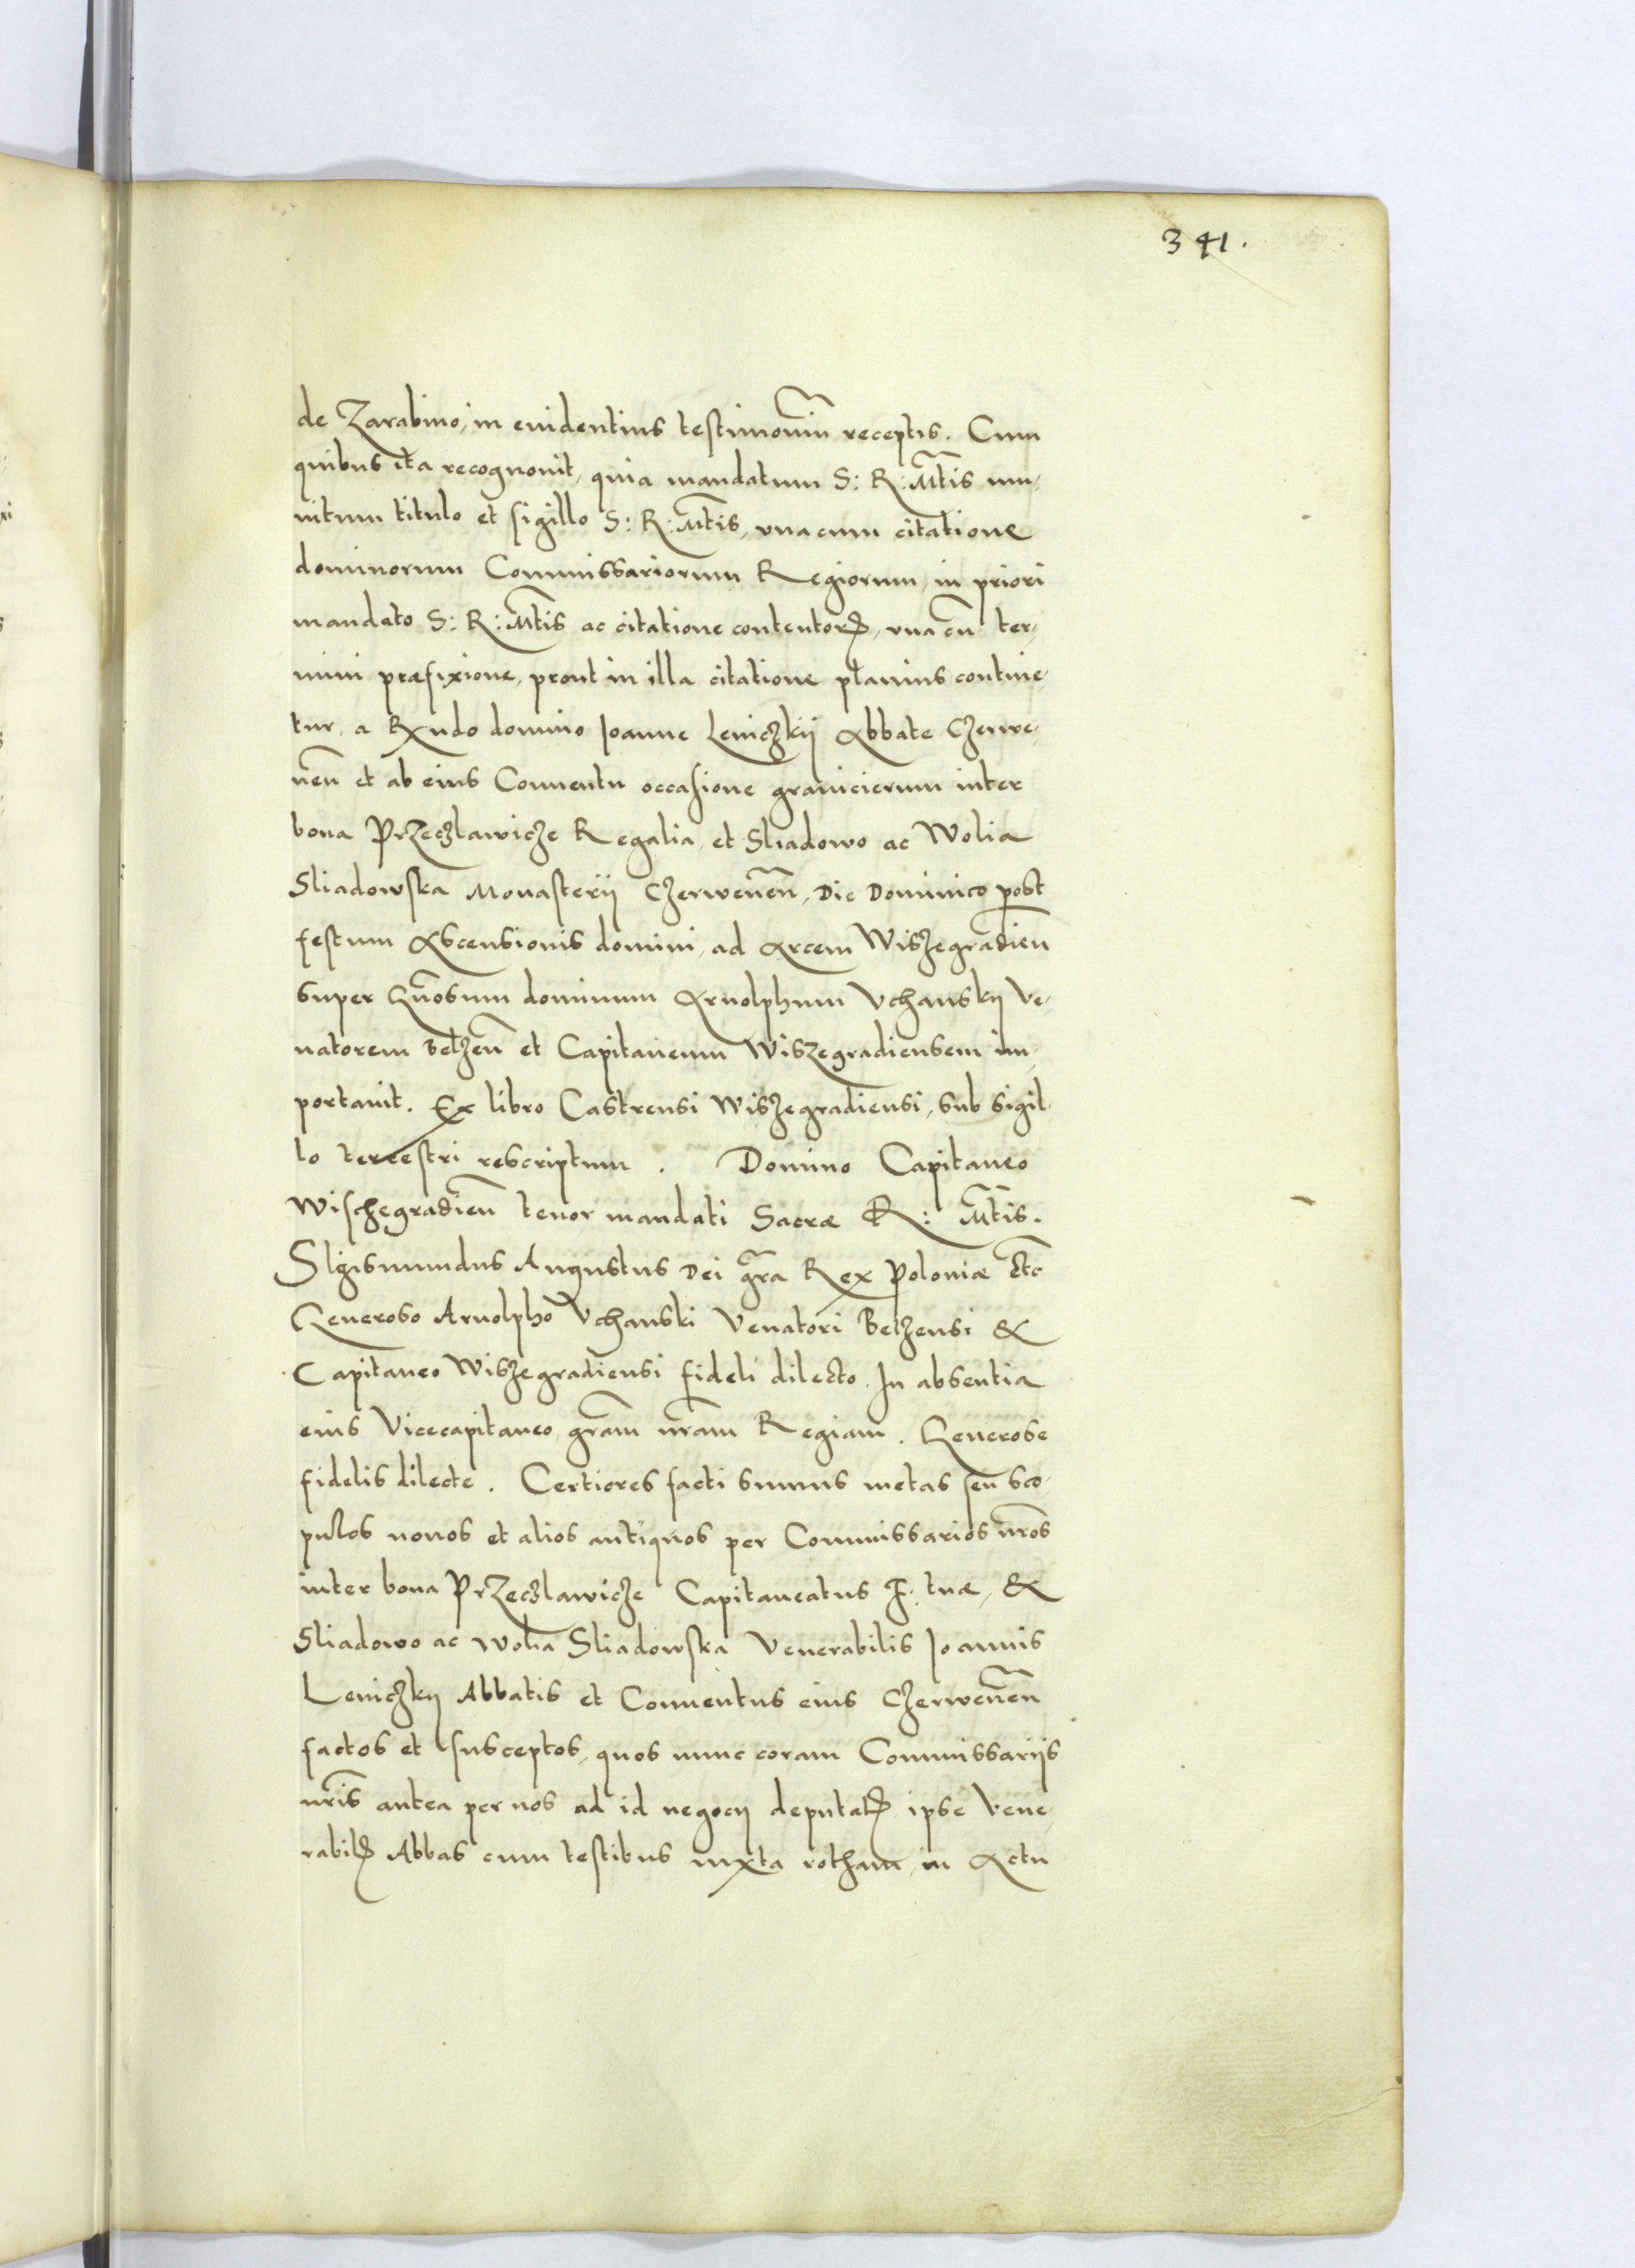 341.
de Zarabino, in euidentius testimoniu̅ receptis. Cum
quibus ita recognouit, quia mandatum S: R: M̅tis mu¬
nitum titulo et sigillo S: R: M̅tis, vna cum citatione
dominorum Commissariorum Regiorum, in priori
mandato S: R: M̅tis ac citatione contentorꝝ, vna cu̅ ter¬
mini præfixione, prout in illa citatione planius contine¬
tur, a R̅ndo domino Ioanne Leniczkij Abbate Czerwe¬
nen̅ et ab eius Conuentu occasione granicierum inter
bona Przeczlawicze Regalia, et Sliadowo ac Wolia
Sliadowska Monasterij Czerwenen̅, Die Dominico post
festum Ascensionis domini, ad Arcem Wiszegradien̅
super Gn̅osum dominum Arnolphum Vchanskij Ve¬
natorem Belzen̅ et Capitaneum Wiszegradiensem im¬
portauit. Ex libro Castrensi Wiszegradiensi, sub sigil¬
lo terrestri rescriptum. Domino Capitaneo
Wischegradien̅ tenor mandati Sacræ R: M̅tis.
SIgismundus Augustus Dei gr̅a Rex Poloniæ etc̅
Generoso Arnolpho Vchanski Venatori Belzensi &
Capitaneo Wiszegradiensi fideli dilecto. In absentia
eius Vicecapitaneo, gra̅m nr̅am Regiam. Generose
fidelis dilecte. Certiores facti sumus metas seu sco¬
pulos nouos et alios antiquos per Commissarios nr̅os
inter bona Przeczlawicze Capitaneatus F: tuæ, &
Sliadowo ac Wolia Sliadowska Venerabilis Ioannis
Leniczkij Abbatis et Conuentus eius Czerwenen̅
factos et susceptos, quos nunc coram Commissarijs
nr̅is antea per nos ad id negocij deputatꝭ ipse Vene¬
rabilꝭ Abbas cum testibus iuxta rotham, in Actu